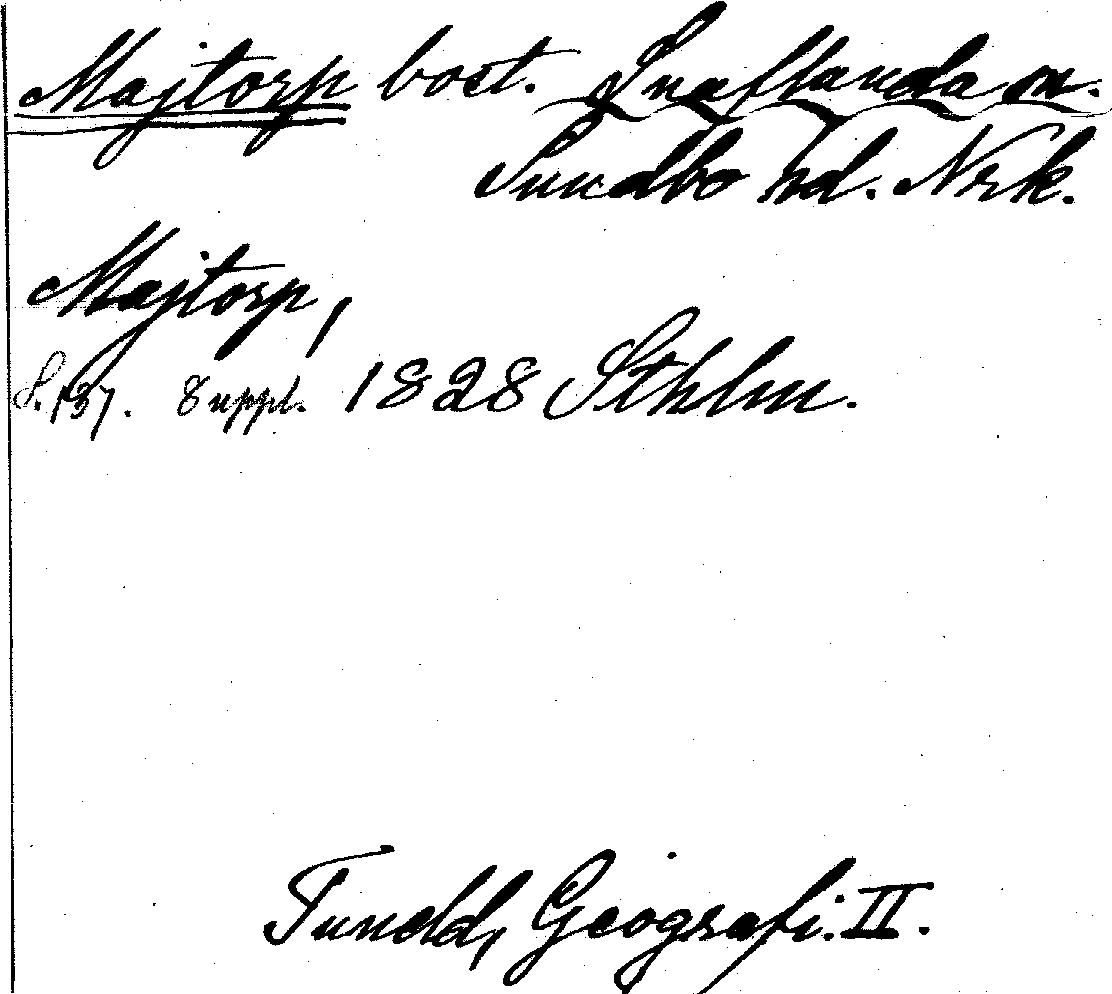 Majtorp bost. Snaflunda sn.
Sundbo hd. Nrk.
Majtorp,
S. 137. Suppl. 1828 Sthlm.
Tuneld, Geografi. II.